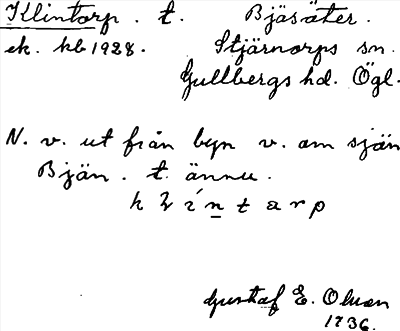 Klintorp. t. Bjäsäter.
ek. kb 1928. Stjärnorps sn.
Gullbergs hd. Ögl.
N. v. ut från byn v. om sjön
Bjän. t. ännu.
Gustaf E. Olsson
1936.